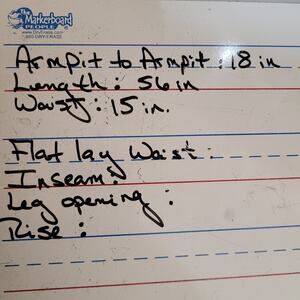 The
Markerboard
PEOPLE
www.DryErase.com
800-DRY-ERASE
Armpit to Armpit : 18 in
Length : 56 in
Waist : 15 in.
Flat lay Waist :
Inseam :
Leg opening :
Rise :